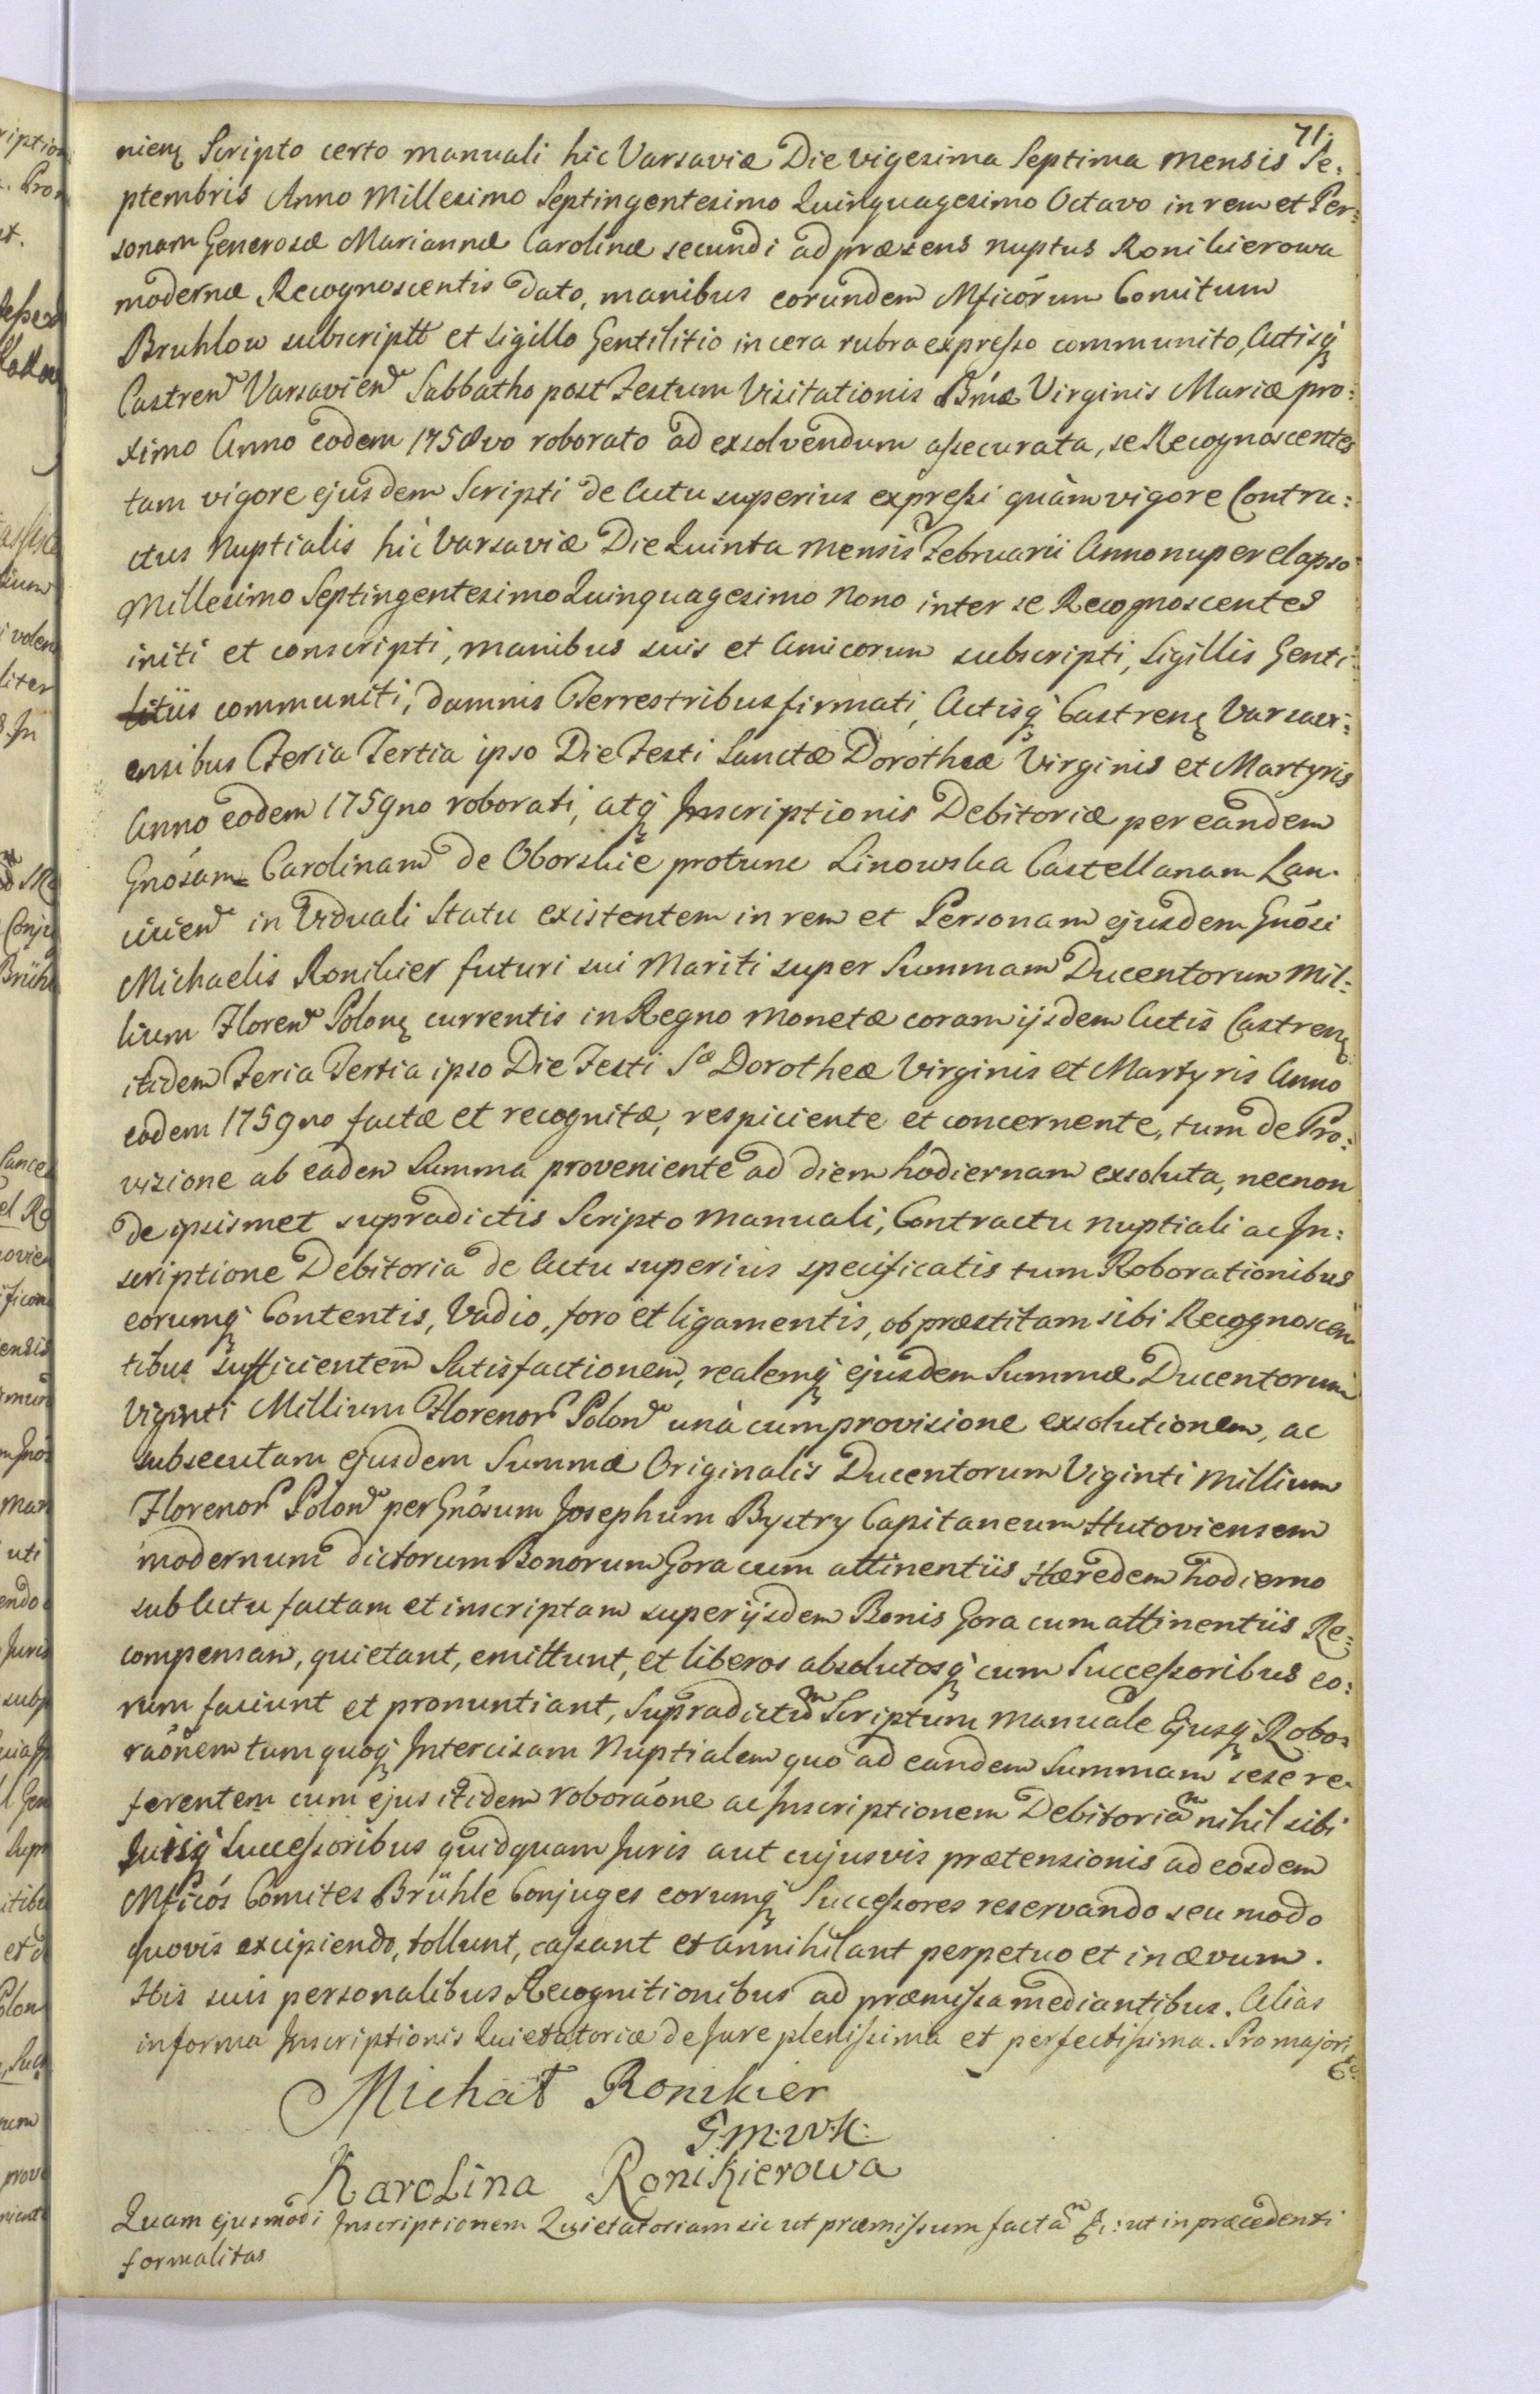 71.
nienę Scripto certo manuali hic Varsaviæ Die vigesima Septima mensis Se:
ptembris Anno Millesimo Septingentesimo Quinquagesimo Octavo in rem et Per:
sonam Generosæ Mariannæ Carolinæ secundi ad præsens nuptus Ronikierowa
modernæ Recognoscentis dato, manibus eorundem Mficórum Comitum
Bruhlow subscriptt et sigillo Gentilitio in cera rubra expresso communito, Actisq́
Castren Varsavien Sabbatho post Festum Visitationis Bmæ Virginis Mariæ pro:
ximo Anno eodem 1758vo roborato ad exsolvendum assecurata, se Recognoscentes
tam vigore ejusdem Scripti de Actu superius expressi quàm vigore Contra:
ctus Nuptialis hic Varsaviæ Die Quinta mensis Februarii Anno nuper elapso
Millesimo Septingentesimo Quinquagesimo Nono inter se Recognoscentes
initi et conscripti, manibus suis et Amicorum subscripti, Sigillis Genti:
litiis communiti, damnis Terrestribus firmati, Actisq́ Castrenę Varsavi:
ensibus Feria Tertia ipso Die Festi Sanctæ Dorotheæ Virginis et Martyris
Anno eodem 1759no roborati, atq́ Inscriptionis Debitoriæ per eandem
Gnósam Carolinam de Oborskie protunc Linowska Castellanam Lan:
cicien in Viduali Statu existentem in rem et Personam ejusdem Gnósi
Michaelis Ronikier futuri sui Mariti super Summam Ducentorum Mil:
lium Floren Polonę currentis in Regno Monetæ coram ijsdem Actis Castrenę
itidem Feria Tertia ipso Die Festi Sæ Dorotheæ Virginis et Martyris Anno
eodem 1759no factæ et recognitæ, respiciente et concernente, tum de Pro:
visione ab eadem Summa proveniente ad diem hodiernam exsoluta, necnon
de ipsismet supradictis Scripto manuali, Contractu nuptiali ac In:
scriptione Debitoria de Actu superius specificatis tum Roborationibus
eorumq́ Contentis, Vadio, foro et ligamentis, ob præstitam sibi Recognoscen
tibus sufficientem Satisfactionem, realemq́ ejusdem Summæ Ducentorum
Viginti Millium Florenor Polon unà cum provisione exsolutionem, ac
subsecutam ejusdem Summæ Originalis Ducentorum Viginti Millium
Florenor Polon per Gnósum Josephum Bystry Capitaneum Hutoviensem
modernum dictorum Bonorum Gora cum attinentiis Hæredem hodierno
sub Actu factam et inscriptam super ijsdem Bonis Gora cum attinentiis Re:
compensam, quietant, emittunt, et liberos absolutosq́ cum Successoribus eo:
rum faciunt et pronuntiant, Supradictum Scriptum manuale Ejusq́ Robo:
raónem tum quoq́ Intercisam Nuptialem quo ad eandem Summam sese re:
ferentem cum ejus itidem roboraóne ac Inscriptionem Debitoriam nihil sibi
Suisq́ Successoribus quidquam Juris aut cujusvis prætensionis ad eosdem
Mficós Comites Brühle Conjuges eorumq́ Successores reservando seu modo
quovis excipiendo, tollunt, cassant et annihilant perpetuo et in ævum.
His suis personalibus Recognitionibus ad præmissa mediantibus. Alias
in forma Inscriptionis Quietatoriæ de Jure plenissima et perfectissima. Pro majori
&c.
Michał Ronikier
G:M:W:K:
Karolina Ronikierowa
Quam ejusmodi Inscriptionem Quietatoriam sic ut præmissum factam &c: ut in præcedenti
formalitas